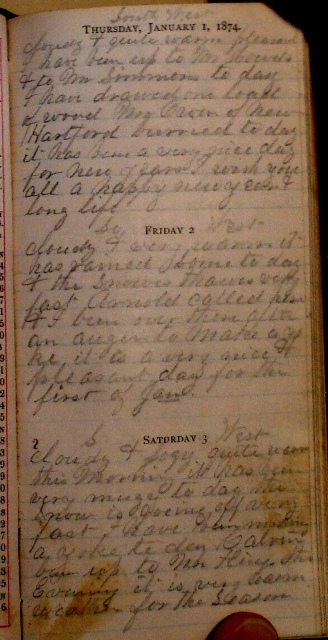 South West
THURSDAY, JANUARY 1, 1874.
cloudy & quite warm pleasant
I have been up to Mr
& to Mr Simmons to day
I have drawed one load
of wood Mrs Owen of New
Hartford burried to day
it has been a very nice day
for New Years I wish you
all a happy new year &
long life
So West
FRIDAY 2
cloudy & very warm it
has rained some to day
& the Snow is very
fast Arnold called here
& I been over then after
an auger to Make a yo
ke, it is a very nice &
pleasant day for the
first of Jan
S West
SATURDAY 3
2
Cloudy & fogy quite warm
this Morning it has been
very to day the
snow is going off very
fast I have been
a yoke to day Calvin
up to Mr this
Evening it is very warm
weather for the Season